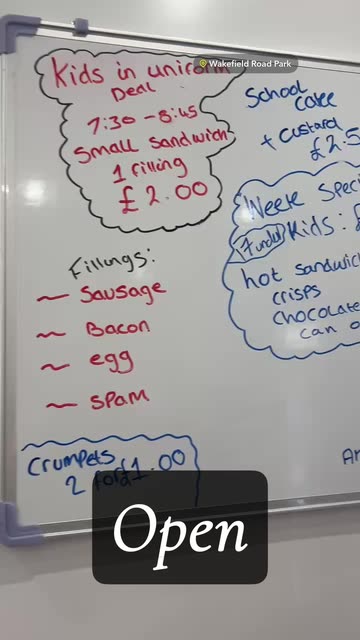 Wakefield Road Park
Kids in uniform
Deal
7:30 - 8:45
Small Sandwich
1 filling
£2.00
Fillings:
~ Sausage
~ Bacon
~ egg
~ Spam
Crumpets
2 for £1.00
School
Cake
+ Custard
£2.5
Week Spec
Funded Kids: £
hot Sandwic
crisps
chocolate
can o
Open